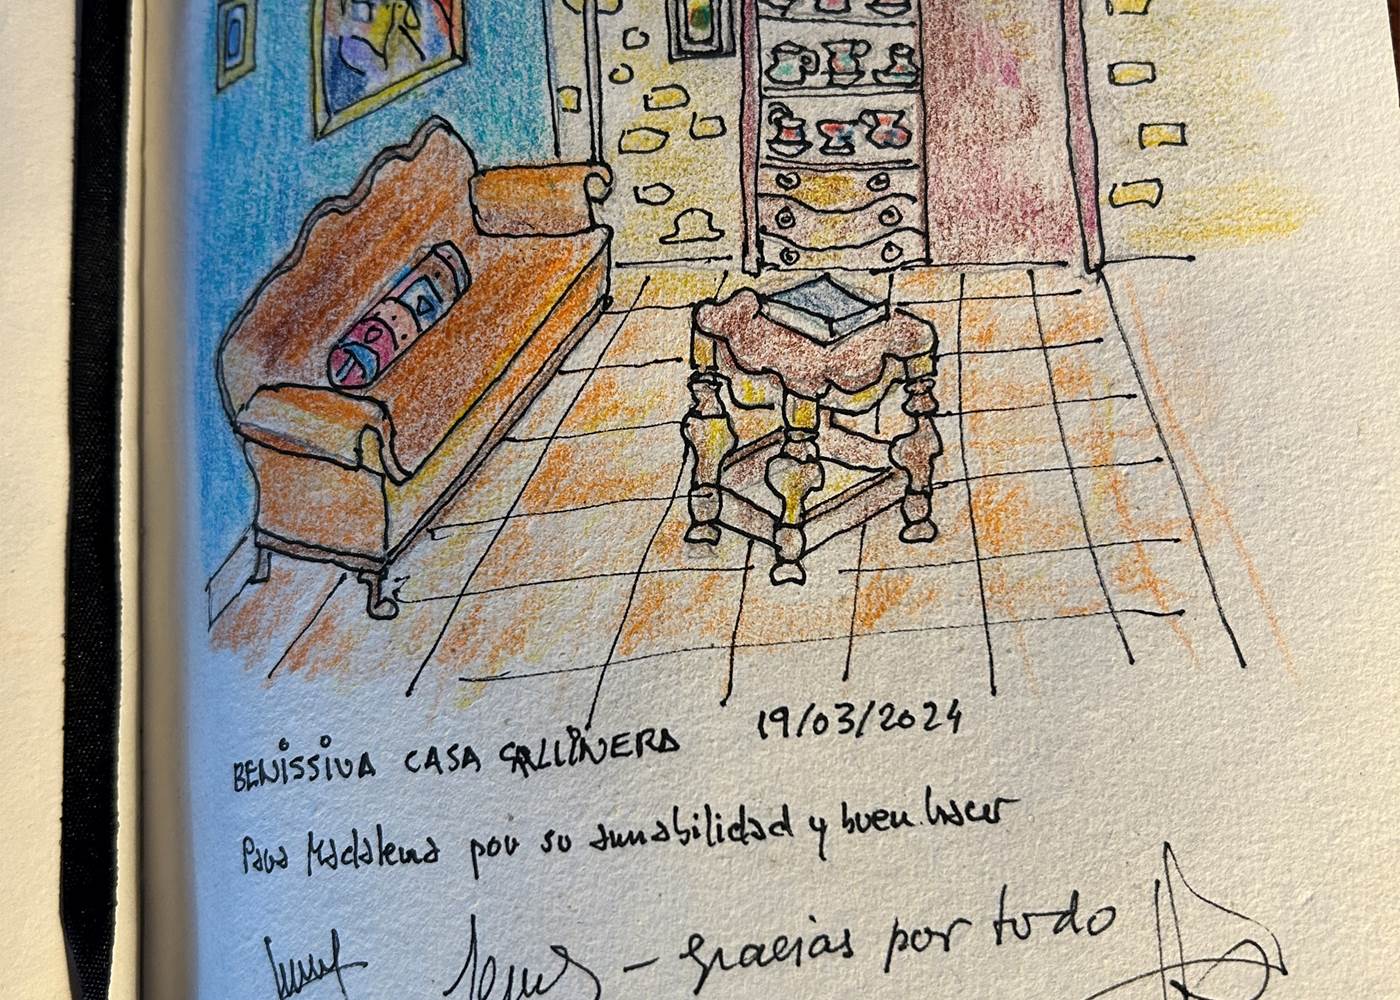 BENISSIVA CASA GALLINERA 19/03/2024
Para Madalena por su amabilidad y buen hacer
— gracias por todo